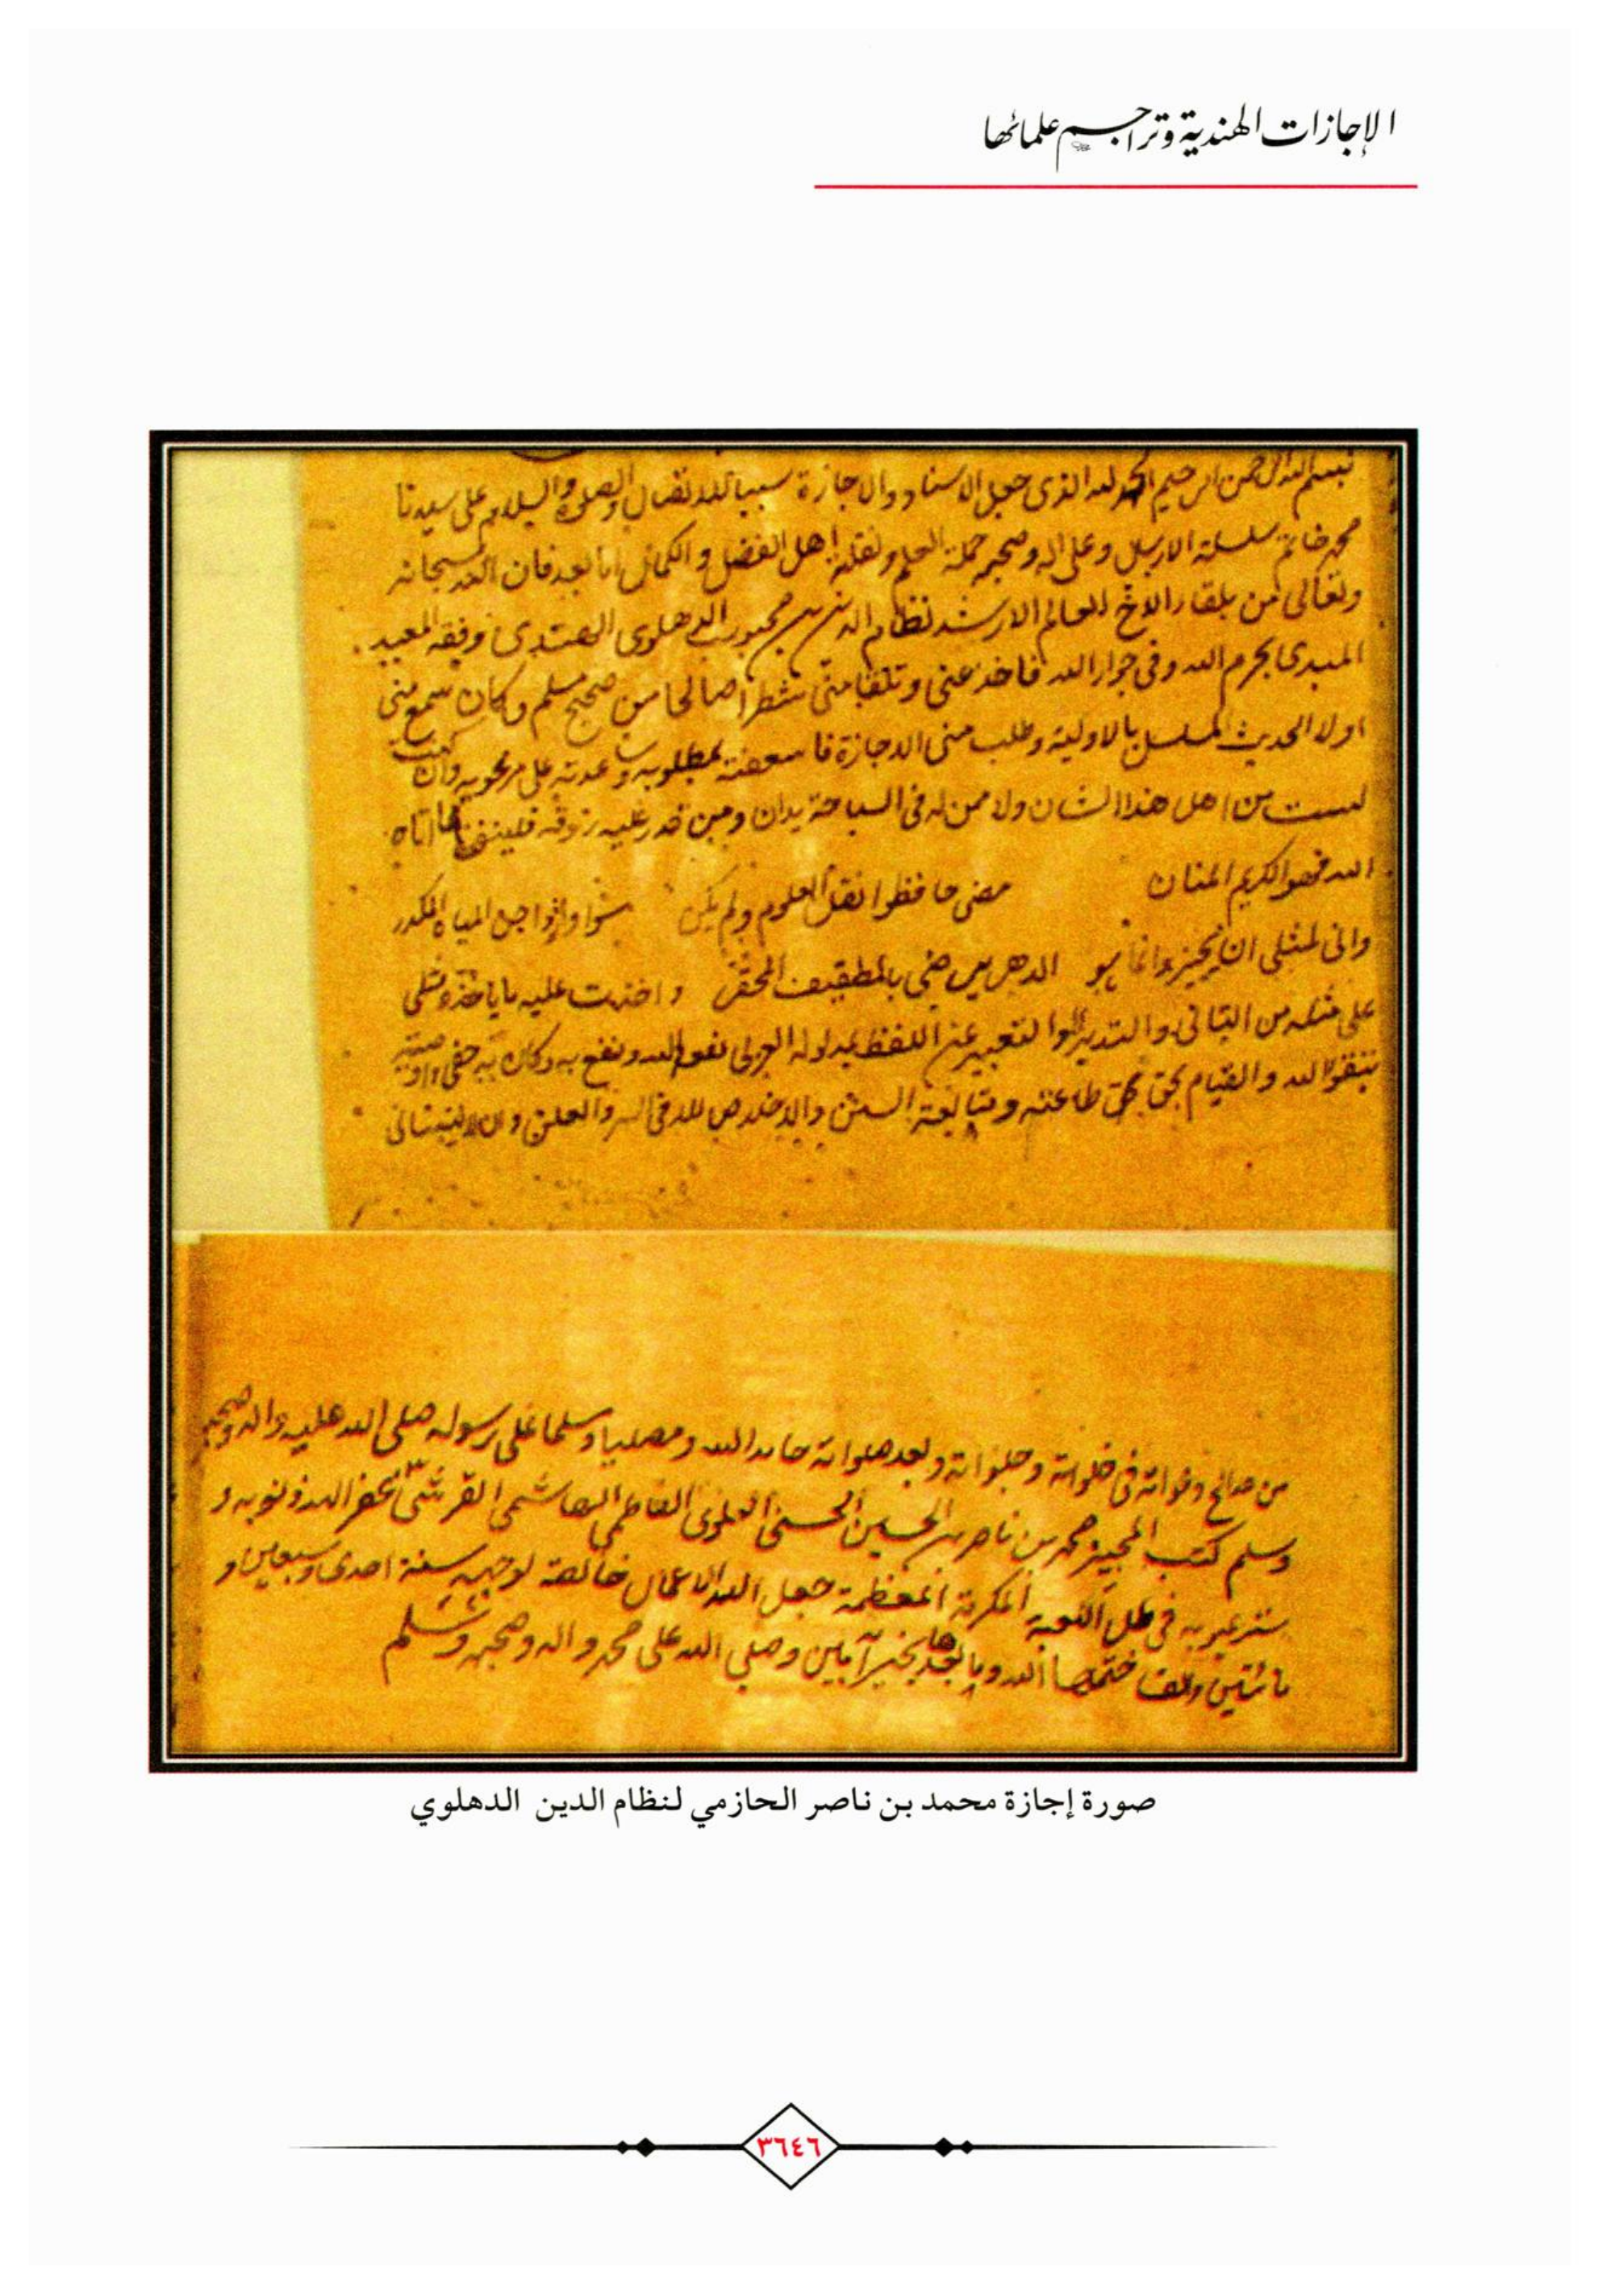 الإجازات الهندية وتراجم علمائها
بسم الله الرحمن الرحيم الحمد لله الذى جعل الاسناد والاجازة سببا للاتصال والصلوة والسلام على سيدنا
محمد خاتم سلسلة الارسال وعلى اله وصحبه حملة العلم ونقلة اهل الفضل والكمال اما بعد فان الله سبحانه
وتعالى من بلقاء الاخ العالم الارشد نظام الدين بن محبوب الدهلوى الهندى وفقه المعيد
المبدى بحرم الله وفى جوار الله فاخذ عنى وتلقا منى شطرا صالحا من صحيح مسلم وكان سمع منى
اولا الحديث المسلسل بالاولية وطلب منى الاجازة فاسعفته بمطلوبه وساعدته على مرغوبه وان كنت
لست من اهل هذا الشان ولا ممن له فى السباحة يدان ومن قدر عليه رزقه فلينفق مما اتاه
الله فهو الكريم المنان مضى حافظوا نقل العلوم ولم يكن المياه المكدر
وانى لمثلى ان يجيز وانما هو الدهر واخذت عليه ما ياخذه مثلى
على مثله من التانى والتدبر والتعبير عن اللفظ بمدلوله العربى نفعه الله ونفع به وكان به حفى واوصيته
بتقوى الله والقيام بحق طاعته ومتابعة السنن والاخلاص لله فى السر والعلن وان لا ينسانى
من صالح دعواته فى خلواته وجلواته وبعد صلواته حامدا لله ومصليا ومسلما على رسوله صلى الله عليه واله وصحبه
وسلم كتب المجيز محمد بن ناصر بن الحسين الحسنى العلوى الفاطمى الهاشمى القرشى غفر الله ذنوبه و
ستر عيوبه فى ظل الكعبة المكرمة المعظمة جعل الله الاعمال خالصة لوجهه سنة احدى وسبعين و
مائتين والف ختمها الله وما بعدها بخير آمين وصلى الله على محمد واله وصحبه وسلم
صورة إجازة محمد بن ناصر الحازمي لنظام الدين الدهلوي
٣٦٤٦